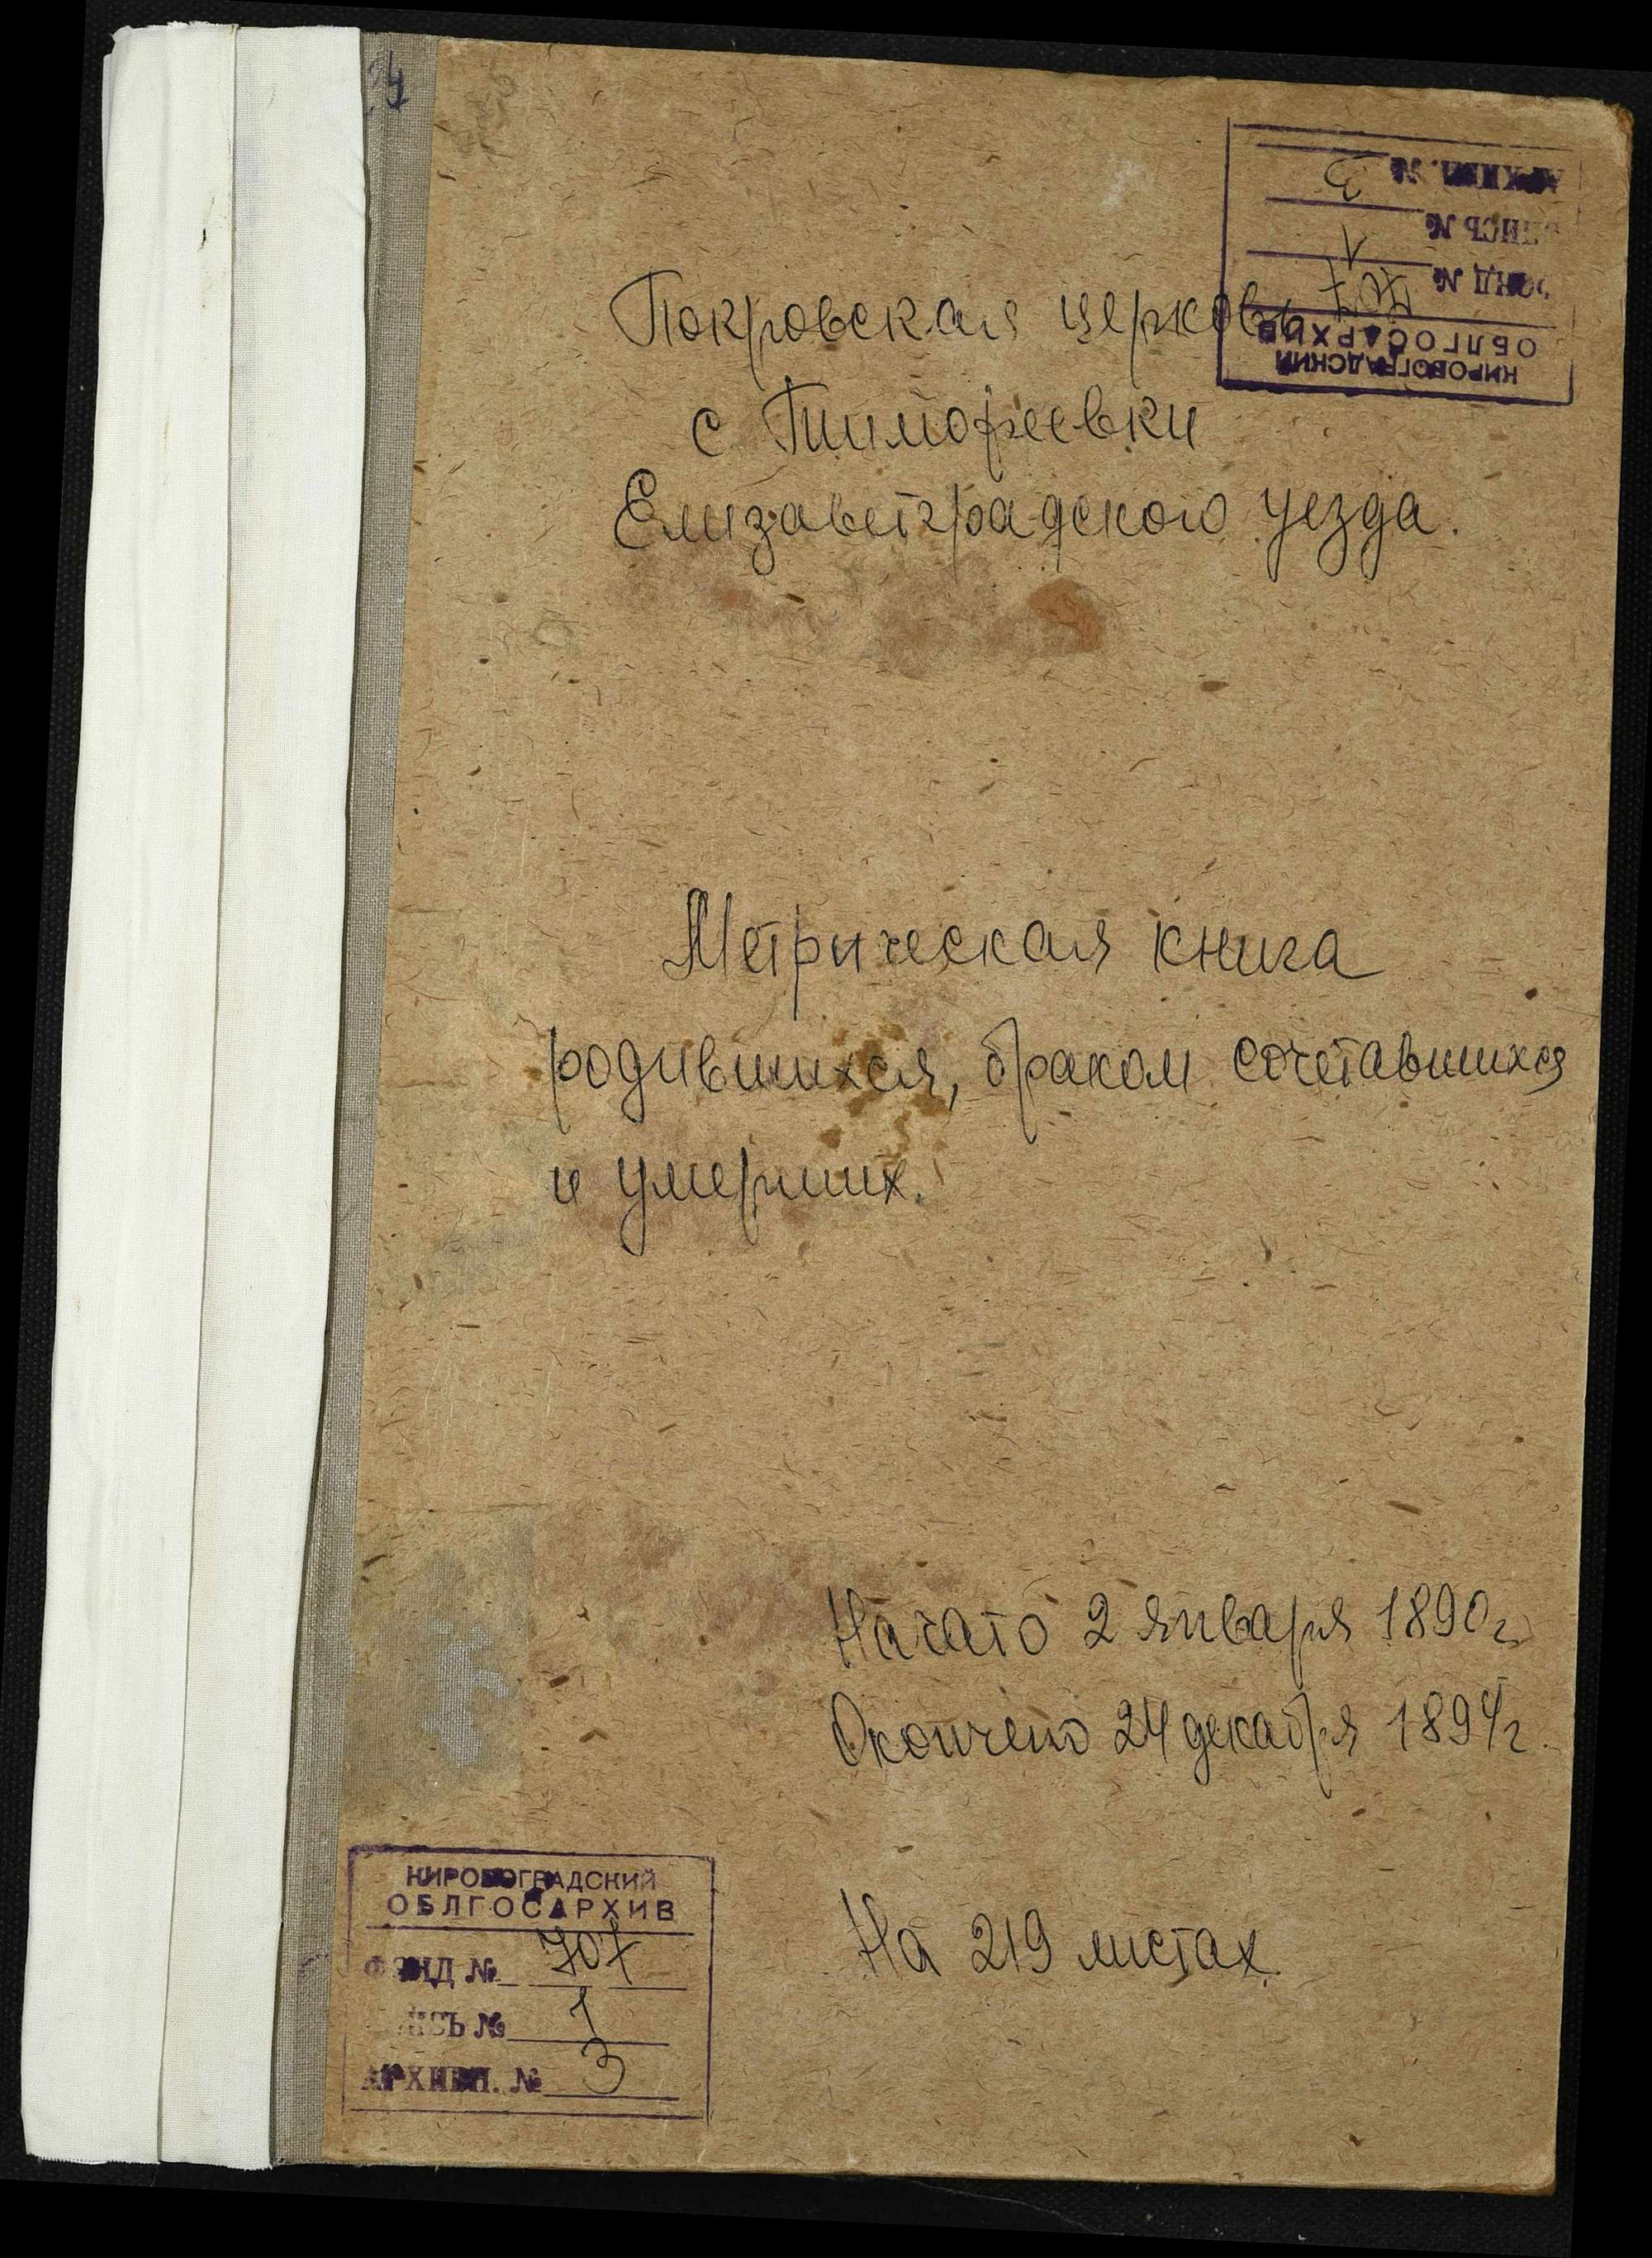 24
КИРОВОГРАДСКИЙ
ОБЛГОСАРХИВ
ФОНД № 707
ОПИСЬ № 1
АРХИВН. № 3
Покровская церковь
с Тимофеевки
Елизаветградского уезда.
Метрическая книга
родившихся, браком сочетавшихся
и умерших.
Начато 2 января 1890 г.
Окончено 24 декабря 1894 г.
На 219 листах
КИРОВОГРАДСКИЙ
ОБЛГОСАРХИВ
ФОНД № 707
ОПИСЬ № 1
АРХИВН. № 3